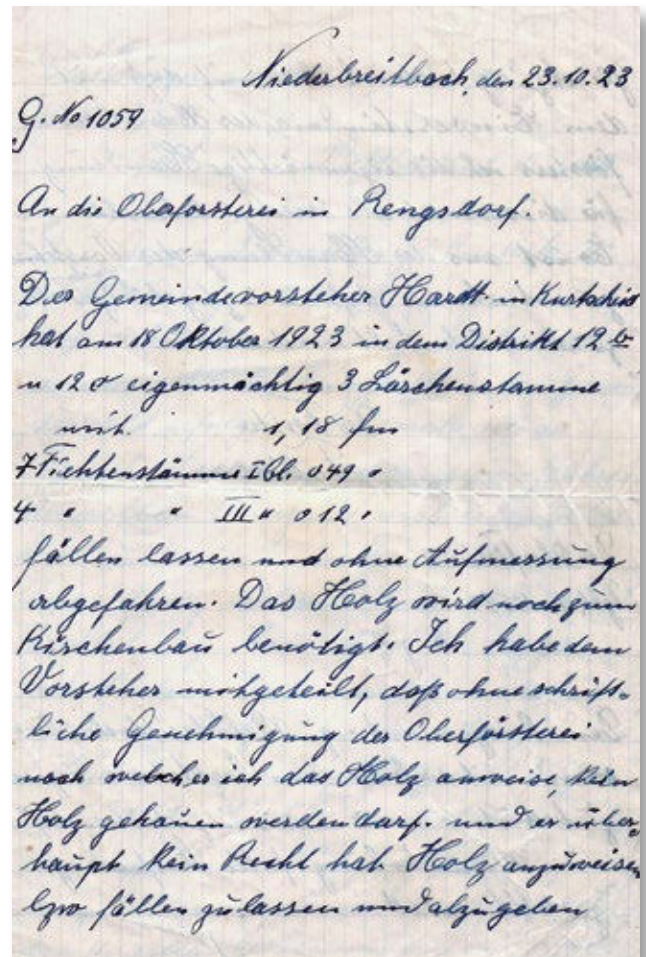 Niederbreitbach, den 23.10.23
G. No 1059
An die Oberforsterei in Rengsdorf.
Der Gemeindevorsteher Hardt in Kurtscheid
hat am 18 Oktober 1923 in dem Distrikt 12 b
u 12 d eigenmächtig 3 Lärchenstämme
mit 1,18 fm
7 Fichtenstämme I Cl. 0 49 "
4 " " III " 0 12 "
fällen lassen und ohne Aufmessung
abgefahren. Das Holz wird noch zum
Kirchenbau benötigt. Ich habe dem
Vorsteher mitgeteilt, daß ohne schrift-
liche Genehmigung der Oberförsterei
nach welcher ich das Holz anweise, kein
Holz gehauen werden darf. und er über-
haupt kein Recht hat Holz anzuweisen
bzw fällen zu lassen und abzugeben